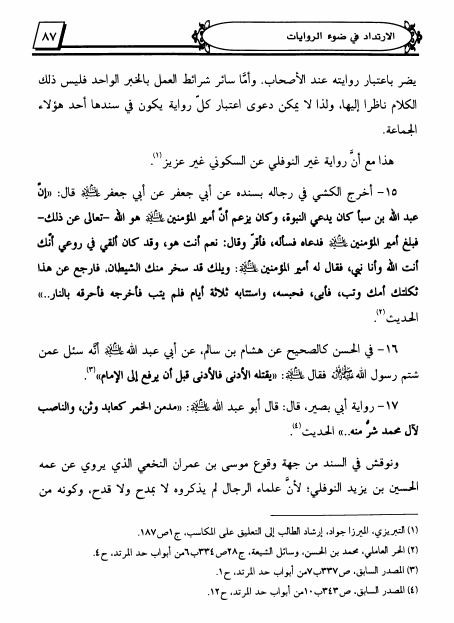 الارتداد في ضوء الروايات
٨٧
يضر باعتبار روايته عند الأصحاب. وأمَّا سائر شرائط العمل بالخبر الواحد فليس ذلك
الكلام ناظرا إليها، ولذا لا يمكن دعوى اعتبار كلّ رواية يكون في سندها أحد هؤلاء
الجماعة.
هذا مع أنَّ رواية غير النوفلي عن السكوني غير عزيز(١).
١٥- أخرج الكشي في رجاله بسنده عن أبي جعفر عن أبي جعفر قال: «إنّ
عبد الله بن سبأ كان يدعي النبوة، وكان يزعم أنّ أمير المؤمنين هو الله -تعالى عن ذلك-
فبلغ أمير المؤمنين فدعاه فسأله، فأقرّ وقال: نعم أنت هو، وقد كان ألقي في روعي أنّك
أنت الله وأنا نبي، فقال له أمير المؤمنين : ويلك قد سخر منك الشيطان. فارجع عن هذا
ثكلتك أمك وتب، فأبى، فحبسه، واستتابه ثلاثة أيام فلم يتب فأخرجه فأحرقه بالنار..»
الحديث(٢).
١٦- في الحسن كالصحيح عن هشام بن سالم، عن أبي عبد الله أنَّه سئل عمن
شتم رسول الله فقال : «يقتله الأدنى فالأدنى قبل أن يرفع إلى الإمام»(٣).
١٧- رواية أبي بصير، قال: قال أبو عبد الله : «مدمن الخمر كعابد وثن، والناصب
لآل محمد شرٌّ منه..» الحديث(٤).
ونوقش في السند من جهة وقوع موسى بن عمران النخعي الذي يروي عن عمه
الحسين بن يزيد النوفلي؛ لأنَّ علماء الرجال لم يذكروه لا بمدح ولا قدح، وكونه من
(١) التبريزي، الميرزا جواد، إرشاد الطالب إلى التعليق على المكاسب، ج١ص١٨٧.
(٢) الحر العاملي، محمد بن الحسن، وسائل الشيعة، ج٢٨ص٣٣٤ب٦من أبواب حد المرتد، ح٤.
(٣) المصدر السابق، ص٣٣٧ب٧من أبواب حد المرتد، ح١.
(٤) المصدر السابق، ص٣٤٣ب١٠من أبواب حد المرتد، ح١٢.